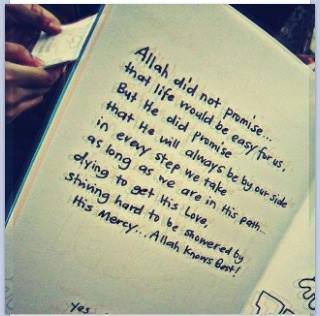 Allah did not promise...
that life would be easy for us,
But He did promise
that He will always be by our side
in every step we take
as long as we are in His path...
dying to get His Love,
striving hard to be showered by
His Mercy... Allah Knows Best!
Yes